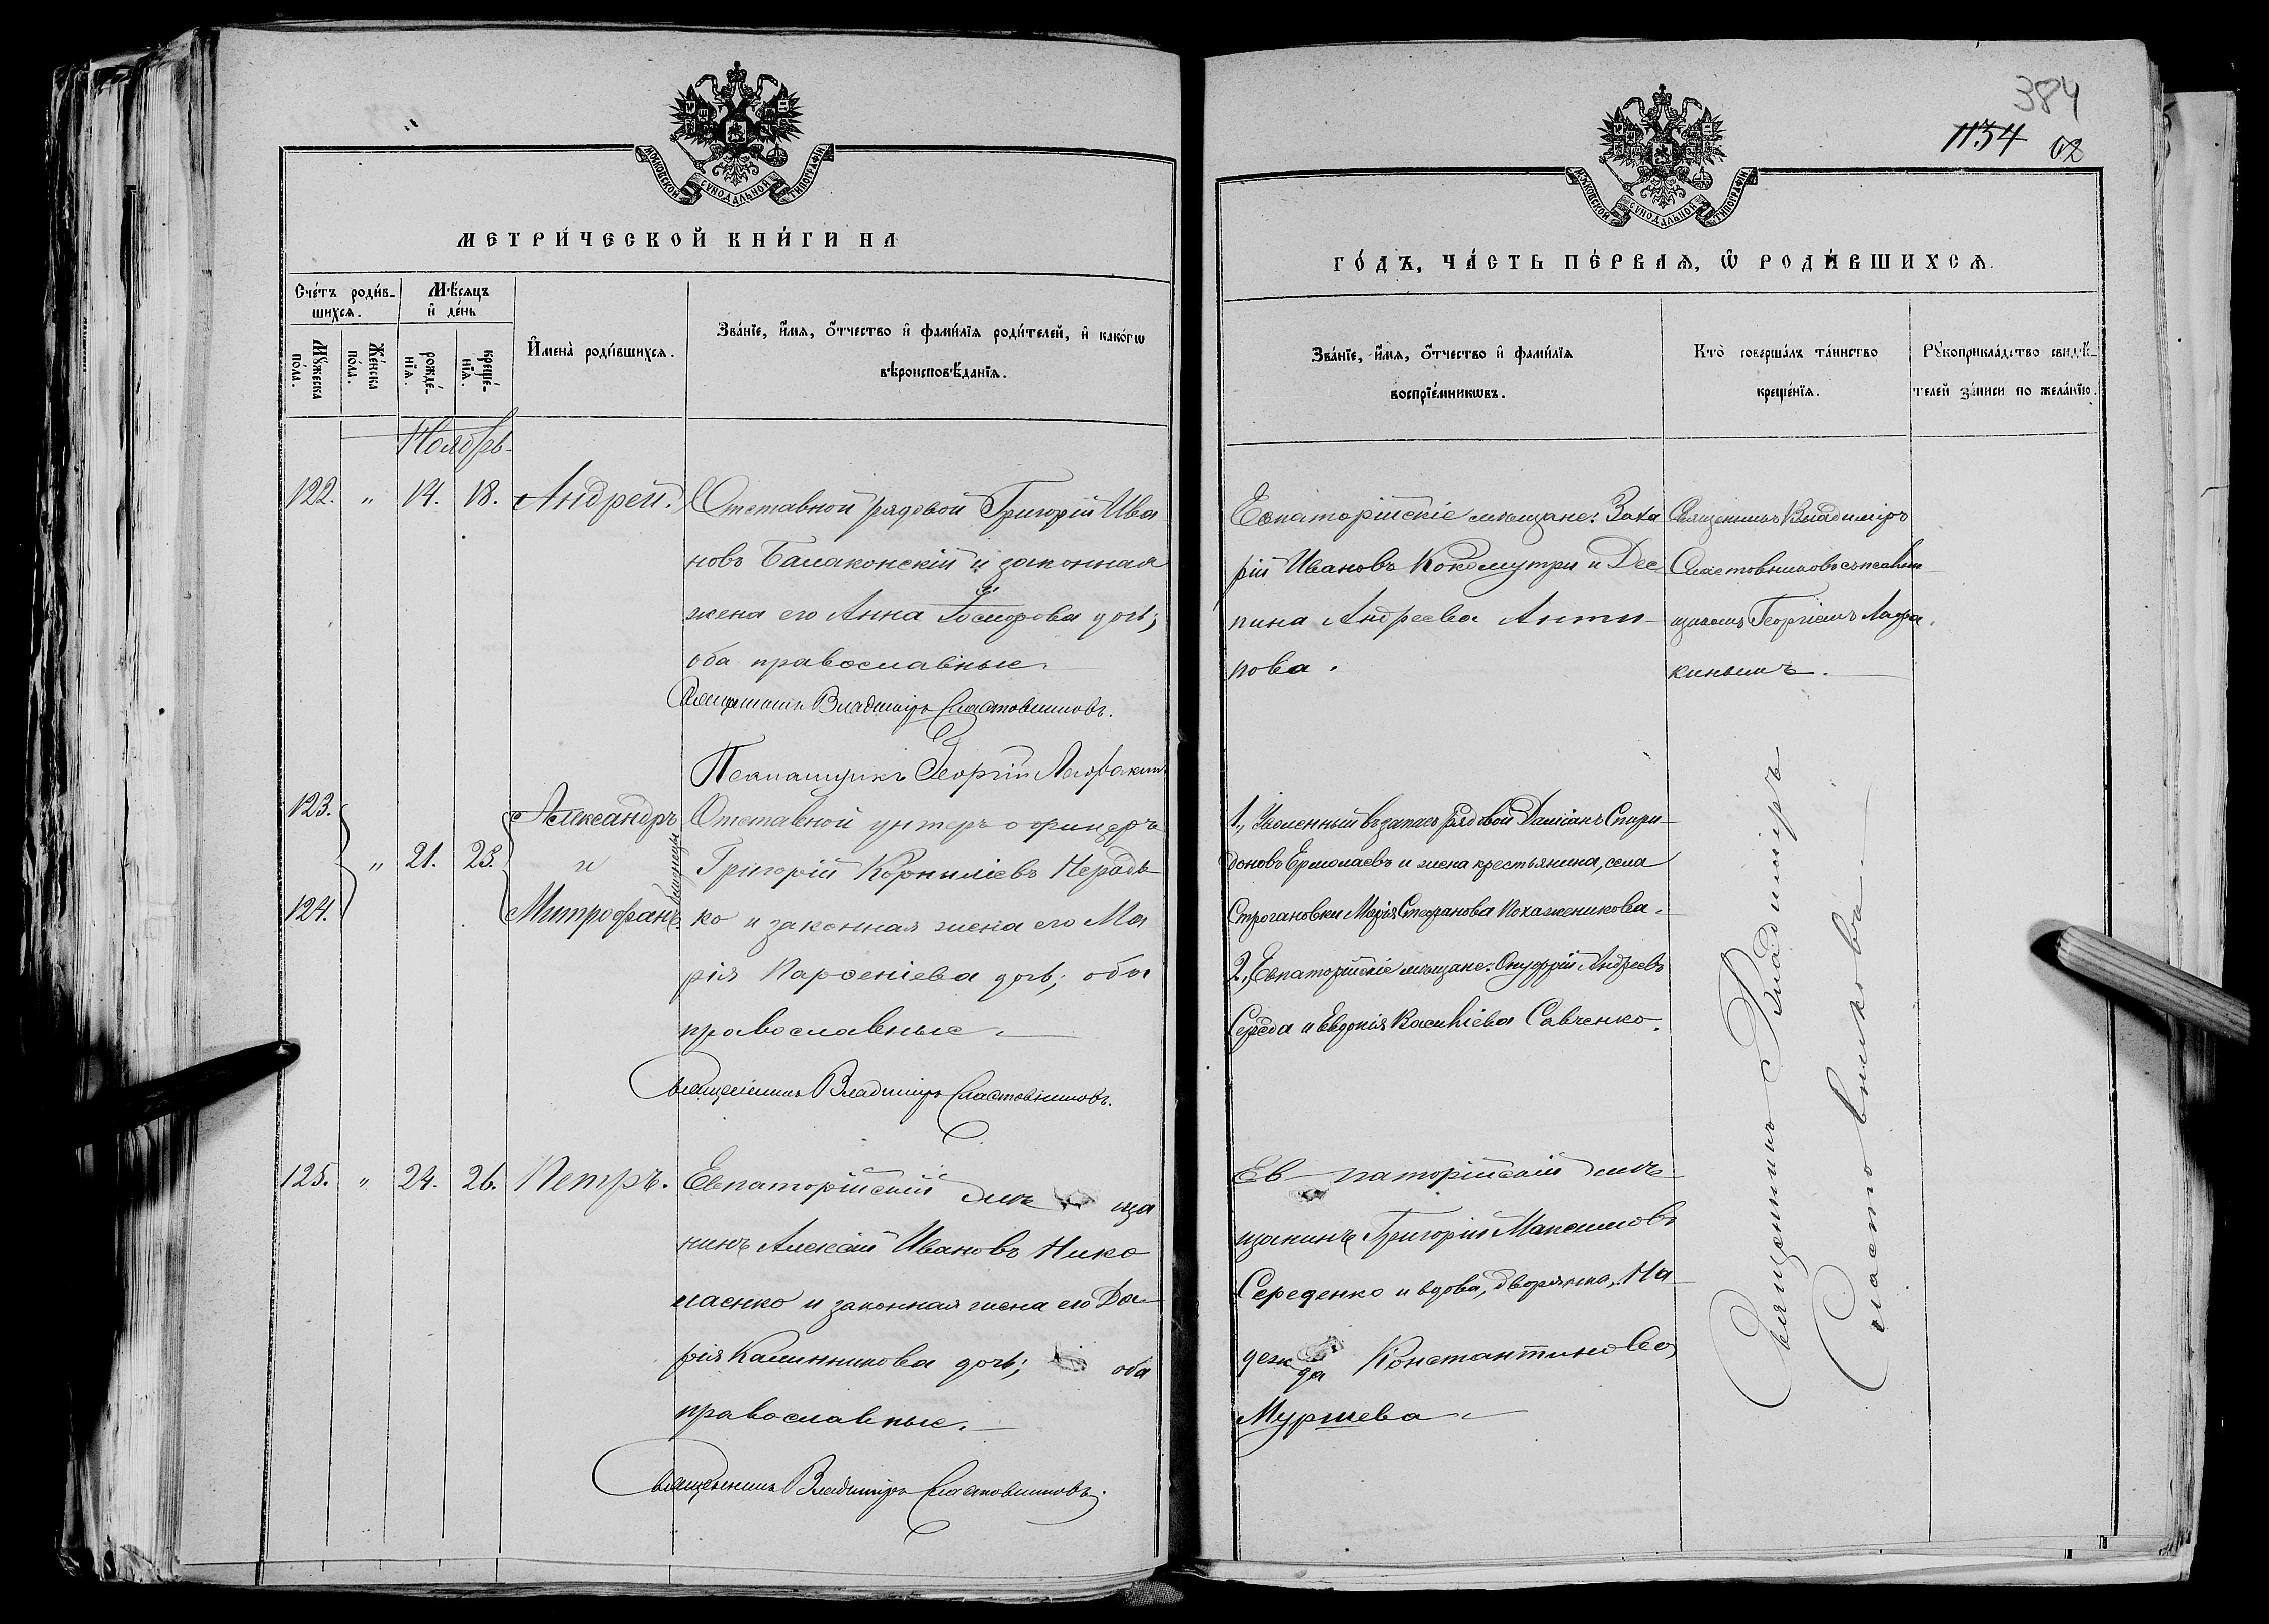 МОСКОВСКОЙ СУНОДАЛЬНОЙ ТИПОГРАФІИ
МЕТРИ́ЧЕСКОЙ КНИ́ГИ НА
Сче́тъ роди́в-
шихся.
Мѣ́сяцъ
и҆ де́нь
Мꙋ́жеска
по́ла.
Же́нска
по́ла.
рожде́-
нїя.
креще́-
нїя.
И҆мена̀ роди́вшихся.
Зва́нїе, и҆́мя, ѻ҆́тчество и҆ фами́лїя роди́телей, и҆ како́гѡ
вѣроисповѣ́данїя.
Ноябрь
122. " 14. 18. Андрей. Отставной рядовой Григорій Ива
новъ Балаконскій и законная
жена его Анна дочь;
оба православные.
Священникъ Владиміръ Сластовниковъ.
Псаломщикъ Георгій
123. Александръ Отставной унтеръ-офицеръ
" 21. 23. и близнецы Григорій Корниліевъ Нерадь
124. Митрофанъ. ко и законная жена его Ма
рія Парѳеніева дочь; оба
православные.
Священникъ Владиміръ Сластовниковъ.
125. " 24. 26. Петръ. Евпаторійскій мѣ ща
нинъ Алексій Ивановъ Нико
лаенко и законная жена его Да-
рія Калинникова дочь; оба
православные.
Священникъ Владиміръ Сластовниковъ.
384
1134 62
МОСКОВСКОЙ СУНОДАЛЬНОЙ ТИПОГРАФІИ
ГО́ДЪ, ЧА́СТЬ ПЕ́РВАЯ, Ѡ҆ РОДИ́ВШИХСЯ.
Зва́нїе, и҆́мя, ѻ҆́тчество и҆ фами́лїя
воспрїе́мникѡвъ.
Кто̀ соверша́лъ та́инство
креще́нїя.
Рꙋкоприкла́дство свидѣ́-
телей за́писи по жела́нїю.
Евпаторійскіе мѣщане: Заха
рій Ивановъ Кокомутри и Дес-
пина Андреева Анти-
пова.
Священникъ Владиміръ
Сластовниковъ съ псалом
щикомъ Георгіемъ Лафа
кинымъ.
1., Уволенный въ запасъ рядовой Даміанъ Спири-
доновъ Ермолаевъ и жена крестьянина, села
Строгановки Марія Стефанова Похаженикова.
2., Евпаторійскіе мѣщане: Онуфрій Андреевъ
Середа и Евдокія Василіева Савченко.
Ев-паторійскій мѣ-
щанинъ Григорій Максимовъ
Середенко и вдова, дворянка, На
деж да Константинова
Муршева
Священникъ Владиміръ
Сластовниковъ